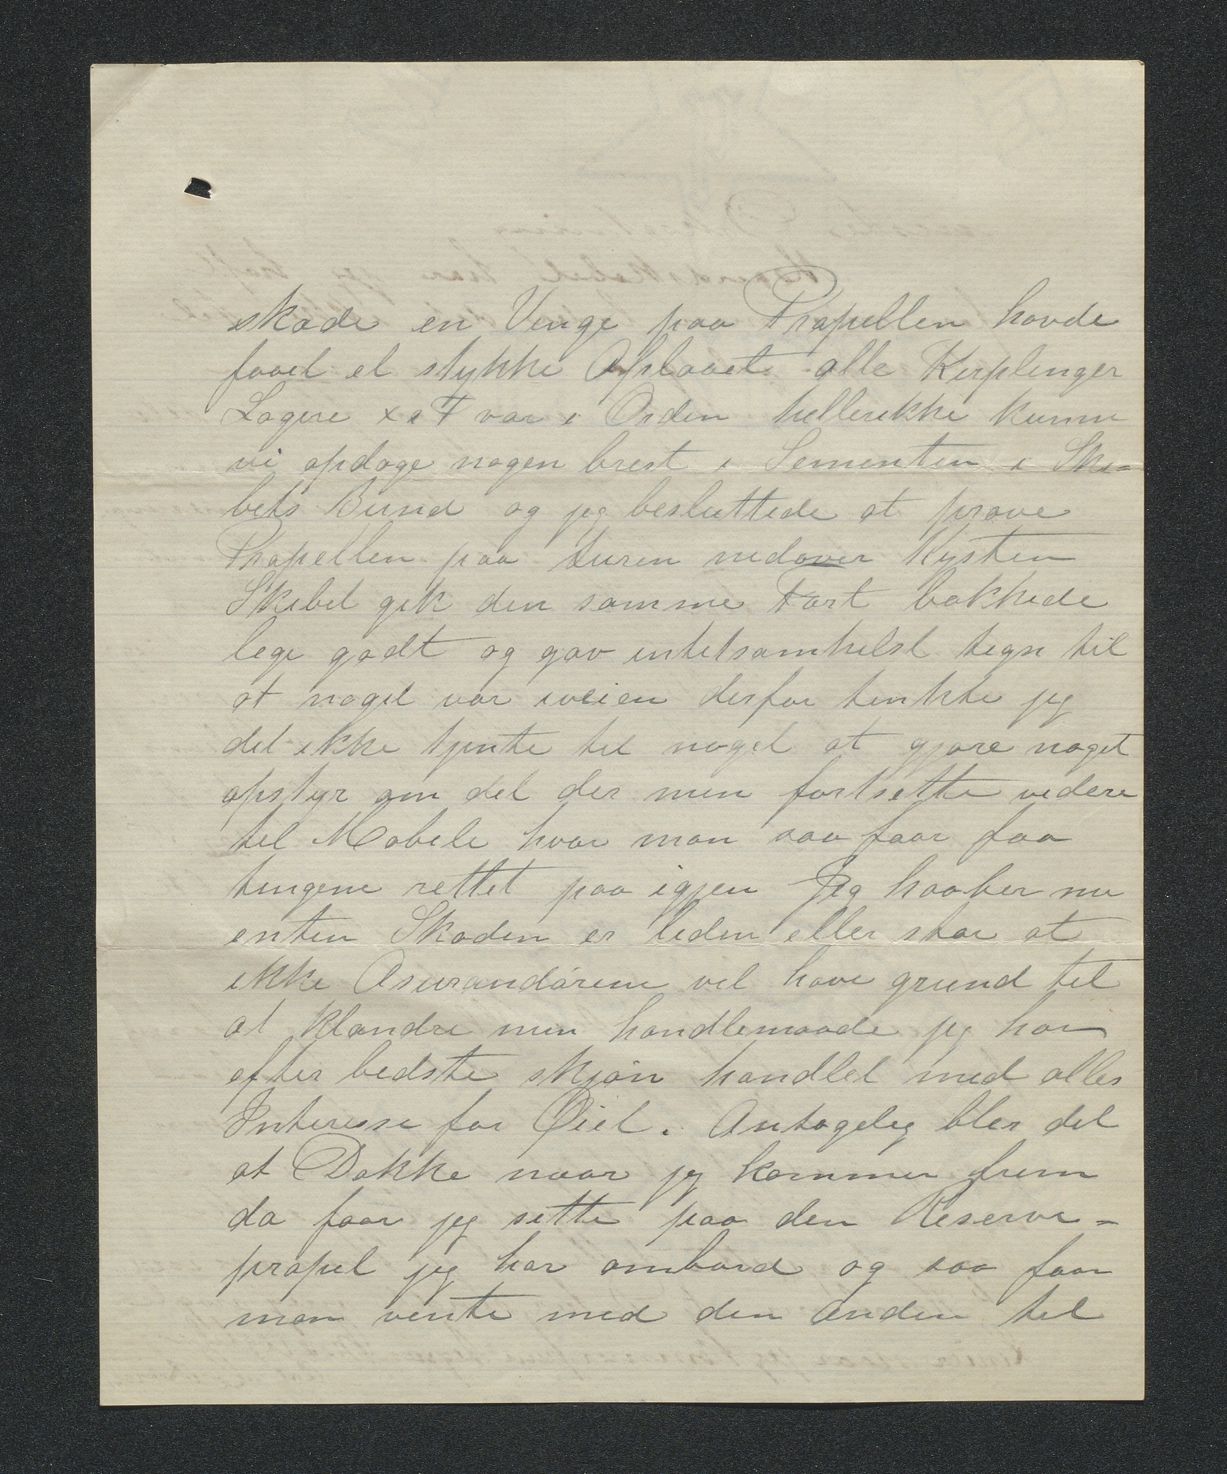 skade en Vinge paa Propellen havde
faaet et stykke Afslaaet. alle Kuplinger
Lagere x a T var i Orden hellerikke kunne
vi opdage nogen brest i Sementen i Ske=
bets Bund og jeg besluttede at prøve
Propellen paa turen nedover Kysten
Skibet gik den samme Fart bakkede
lege godt og gav intetsomhelst tegn til
at noget var iveien derfor tenkte jeg
det ikke tjente til noget at gjøre noget
opstyr om det der men fortsette videre
til Mobile hvor man saa faar faa
tingene rettet paa igjen Jeg haaber nu
enten Skaden er liden eller stor at
ikke Asurandørene vil have grund til
at klandre min handlemaade jeg har
efter bedste skjøn handlet med alles
Interesse for Øiet. Antagelig bler det
at Dokke naar jeg kommer frem
da faar jeg sette paa den Reserve=
propel jeg har ombord og saa faar
man vente med den Anden til